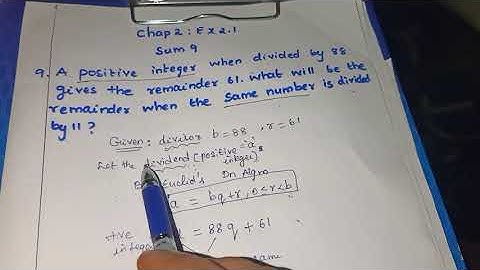 Chap 2 : Ex 2.1
Sum 9
9. A positive integer when divided by 88
gives the remainder 61. what will be the
remainder when the same number is divided
by 11 ?
Given : divisor b = 88, r = 61
Let the dividend (positive = 'a'
integer)
Euclid's Dn Algm
a = bq + r, 0 < r < b
+tive
integer = 88q + 61
same